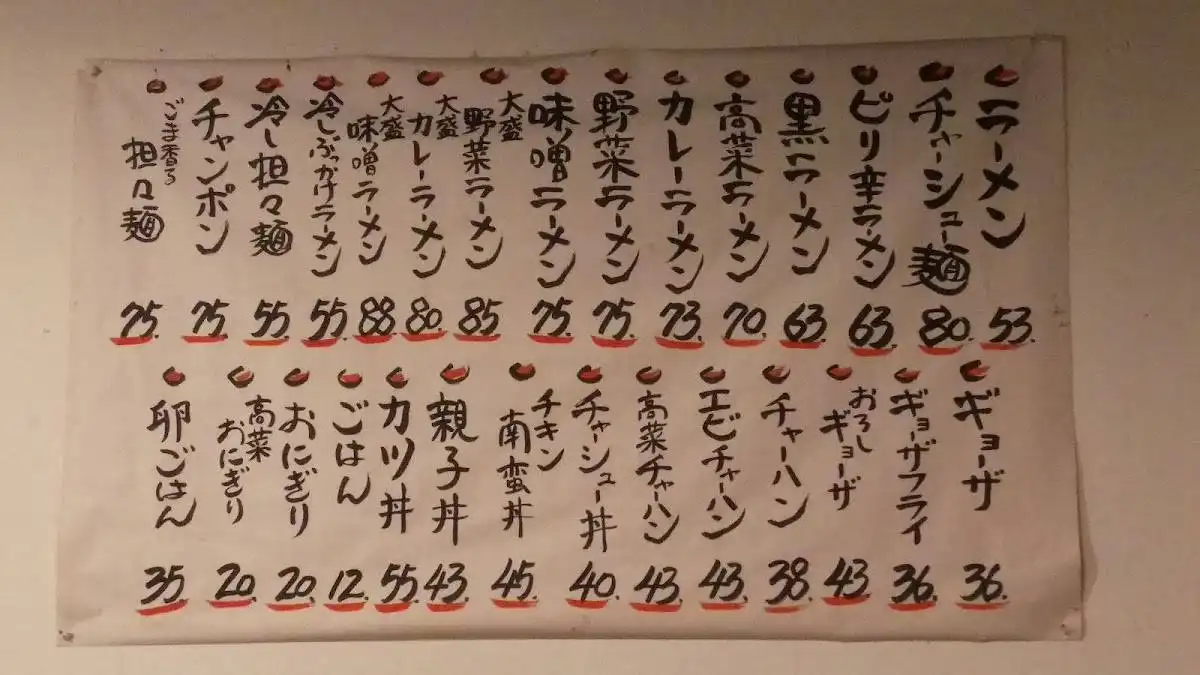 ラーメン 53.
チャーシュー麺 80.
ピリ辛ラーメン 63.
黒ラーメン 63.
高菜ラーメン 70.
カレーラーメン 73.
野菜ラーメン 75.
味噌ラーメン 75.
大盛野菜ラーメン 85.
大盛カレーラーメン 80.
大盛味噌ラーメン 88.
冷しぶっかけラーメン 55.
冷し担々麺 55.
チャンポン 75.
ごま香る担々麺 75.
ギョーザ 36.
ギョーザフライ 36.
おろしギョーザ 43.
チャーハン 38.
エビチャーハン 43.
高菜チャーハン 43.
チャーシュー丼 40.
チキン南蛮丼 45.
親子丼 43.
カツ丼 55.
ごはん 12.
おにぎり 20.
高菜おにぎり 20.
卵ごはん 35.